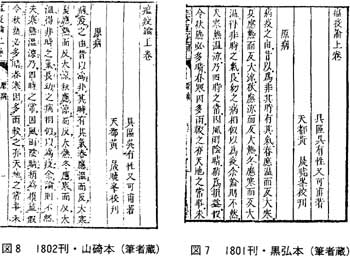 瘟疫論上卷
具區吳有性又可甫著
天都黃 晟曉峯校刊
原病
病疫之由昔以爲非其時有其氣春應溫而反大
寒夏應熱而反大涼秋應涼而反大熱冬應寒而反大
溫得非時之氣長幼之病相似以爲疫余論則不然
夫寒熱溫涼乃四時之常因風雨陰晴稍爲損益假
令秋熱必多晴春寒因多雨較之亦天地之常事未
図7 1801刊・黒弘本（筆者蔵）
瘟疫論上卷
具區吳有性又可甫著
天都黃 晟曉峯校刊
原病
病疫之由昔以爲非其時有其氣春應溫而反大
寒夏應熱而反大涼秋應涼而反大熱冬應寒而反大
溫得非時之氣長幼之病相似以爲疫余論則不然
夫寒熱溫涼乃四時之常因風雨陰晴稍爲損益假
令秋熱必多晴春寒因多雨較之亦天地之常事未
図8 1802刊・山碕本（筆者蔵）